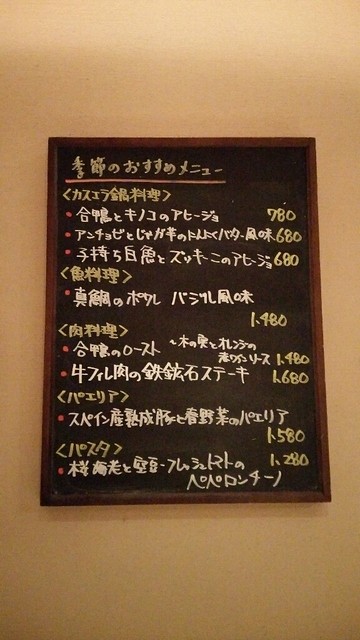 季節のおすすめメニュー
<カスエラ鍋料理>
・合鴨とキノコのアヒージョ 780
・アンチョビとじゃが芋のにんにくバター風味 680
・子持ち白魚とズッキーニのアヒージョ 680
<魚料理>
・真鯛のポワレ バジル風味
1,480
<肉料理>
・合鴨のロースト 〜木の実とオレンジの
赤ワインソース 1,480
・牛フィレ肉の鉄鉱石ステーキ 1,680
<パエリア>
・スペイン産熟成豚と春野菜のパエリア
1,580
<パスタ>
・桜海老と空豆・フレッシュトマトの 1,280
ペペロンチーノ